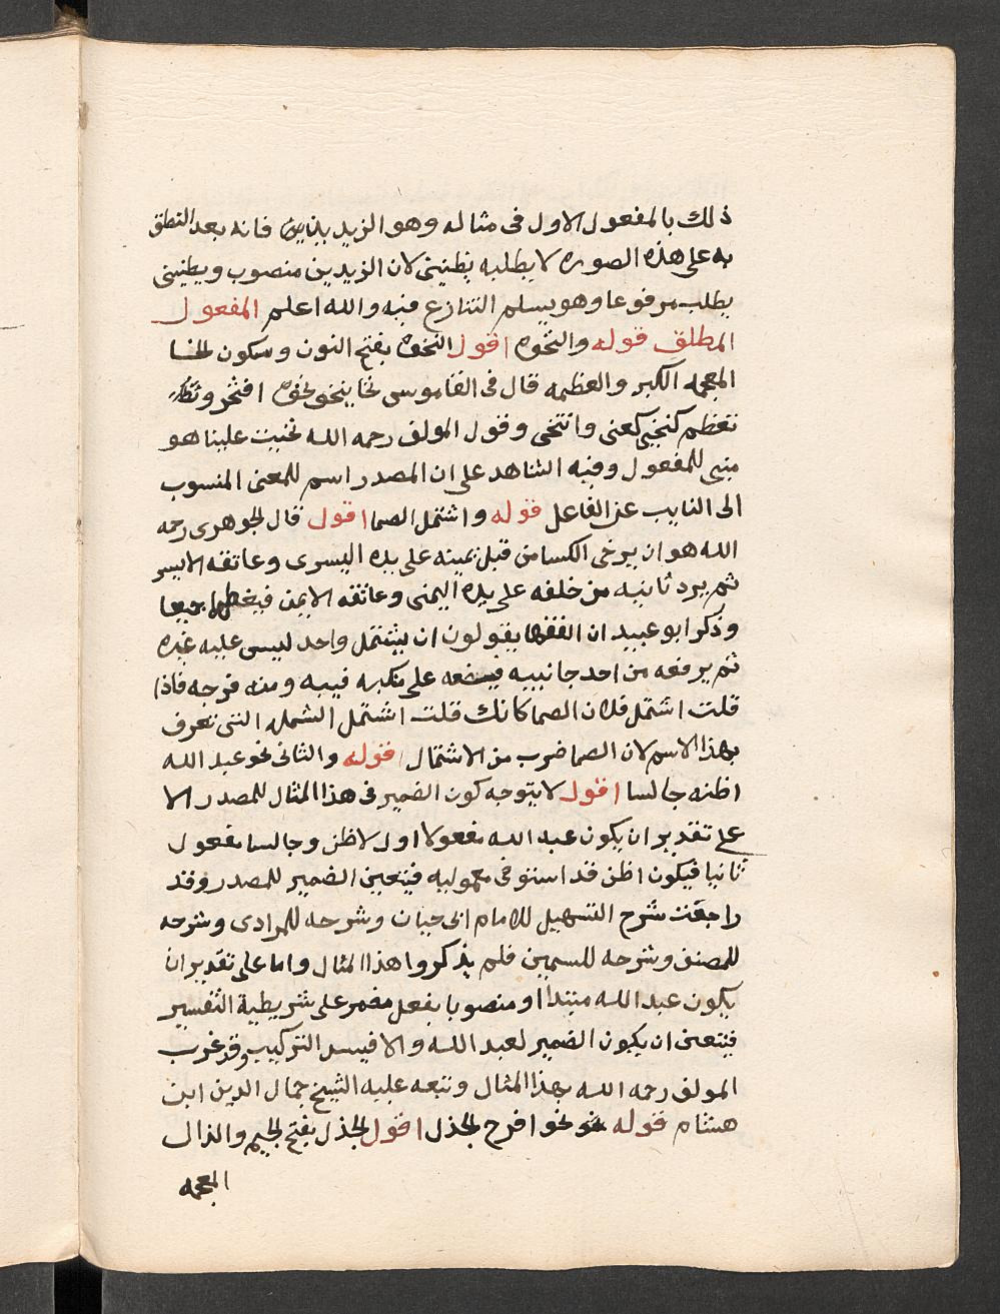 ذلك بالمفعول الاول فى مثاله وهو الزيدين فانه بعد النطق
به على هذه الصوره لا يطلبه يظننى لان الزيدين منصوب ويظننى
يطلب مرفوعا وهو يسلم التنازع فيه والله اعلم المفعول
المطلق قوله والنخوه اقول النخوه بفتح النون وسكون الخا
المعجمه الكبر والعظمه قال فى القاموس نخا ينخو نخوه افتخر وتعظم
تعظم كنخى كعنى وانتخى وقول المولف رحمه الله نخيت علينا هو
مبنى للمفعول وفيه الشاهد على ان المصدر اسم للمعنى المنسوب
الى النايب عن الفاعل قوله واشتمل الصما اقول قال الجوهرى رحمه
الله هو ان يرخى الكسا من قبل يمينه على يده اليسرى وعاتقه الايسر
ثم يرد ثانيه من خلفه على يده اليمنى وعاتقه الايمن فيغطيهما جميعا
وذكر ابو عبيد ان الفقها يقولون ان يشتمل واحد ليس عليه غيره
ثم يرفعه من احد جانبيه فيضعه على منكبه فيبه ومنه فرجه فاذا
قلت اشتمل فلان الصما كانك قلت اشتمل الشمله التى تعرف
بهذا الاسم لان الصما ضرب من الاشتمال قوله والثانى نحو عبد الله
اظنه جالسا اقول لا يتوجه كون الضمير فى هذا المثال للمصدر الا
على تقدير ان يكون عبد الله مفعولا اول لاظن وجالسا مفعول
ثانيا فيكون اظن قد استوفى معموليه فيتعين الضمير للمصدر وقد
راجعت شرح التسهيل للامام ابى حيان وشرحه للمرادى وشرحه
للمصنف وشرحه للسمين فلم يذكروا هذا المثال واما على تقدير ان
يكون عبد الله مبتدا او منصوبا بفعل مضمر على شريطية التفسير
فيتعين ان يكون الضمير لعبد الله والا فيسد التركيب وقد غرب
المولف رحمه الله بهذا المثال وتبعه عليه الشيخ جمال الدين ابن
هشام قوله نحو افرح الجذل اقول الجذل بفتح الجيم والذال
المعجمه